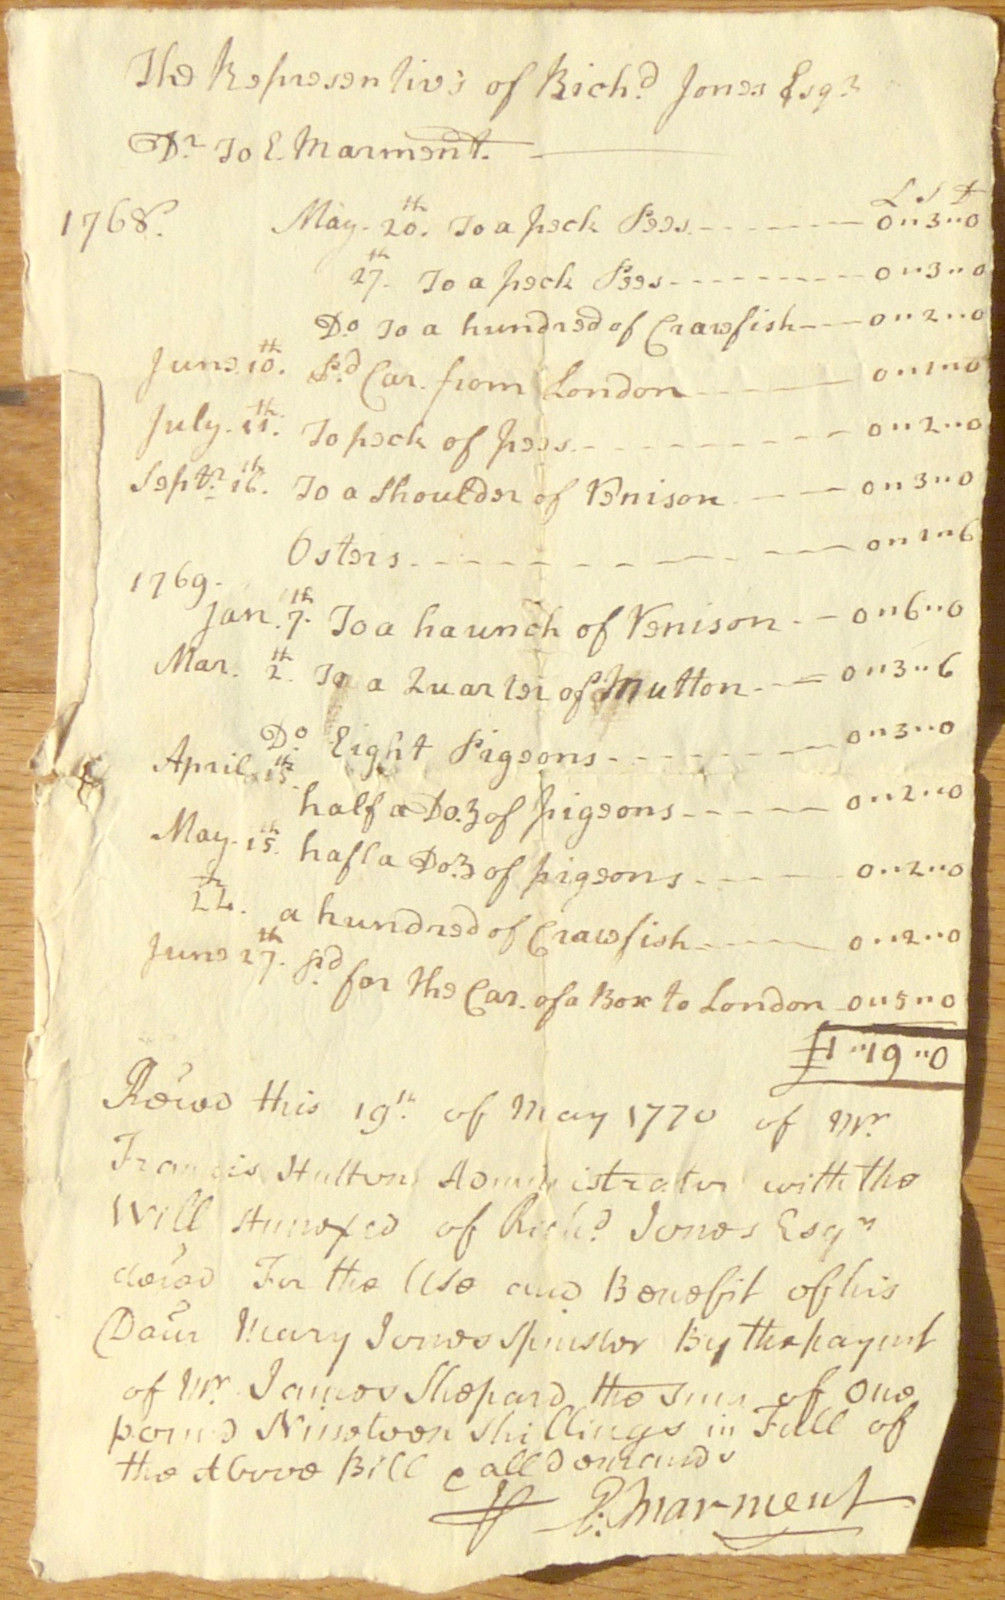 The Representive's of Rich.d Jones Esqr
Dr To E. Marment.
L S D
1768. May. 20.th To a peck Pees. 0"3"0
27.th To a peck Pees 0"3"0
Do To a hundred of Crawfish 0"2"0
June. 10.th P.d Car. from London 0"1"0
July. 11.th To peck of pees 0"2"0
Septr. 16.th To a Shoulder of Venison 0"3"0
Osters 0"1"6
1769.
Jan. 7.th To a haunch of Venison 0"6"0
Mar. 2.th To a Quarter of Mutton 0"3"6
Do Eight Pigeons 0"3"0
April 15.th half a Doz of pigeons 0"2"0
May. 15.th hafl a Doz of pigeons 0"2"0
22. a hundred of Crawfish 0"2"0
June 27.th P.d for the Car. of a Box to London 0"5"0
£1"19"0
Recved this 19th of May 1770 of Mr
Francis Hulton Administrator with the
Will Annexed of Richd Jones Esqr
deced For the Use and Benefit of his
Daur Mary Jones Spinster By the paymt
of Mr James Shepard the Sum of One
pound Nineteen Shillings in Full of
the Above Bill & all Demands
E: Marment